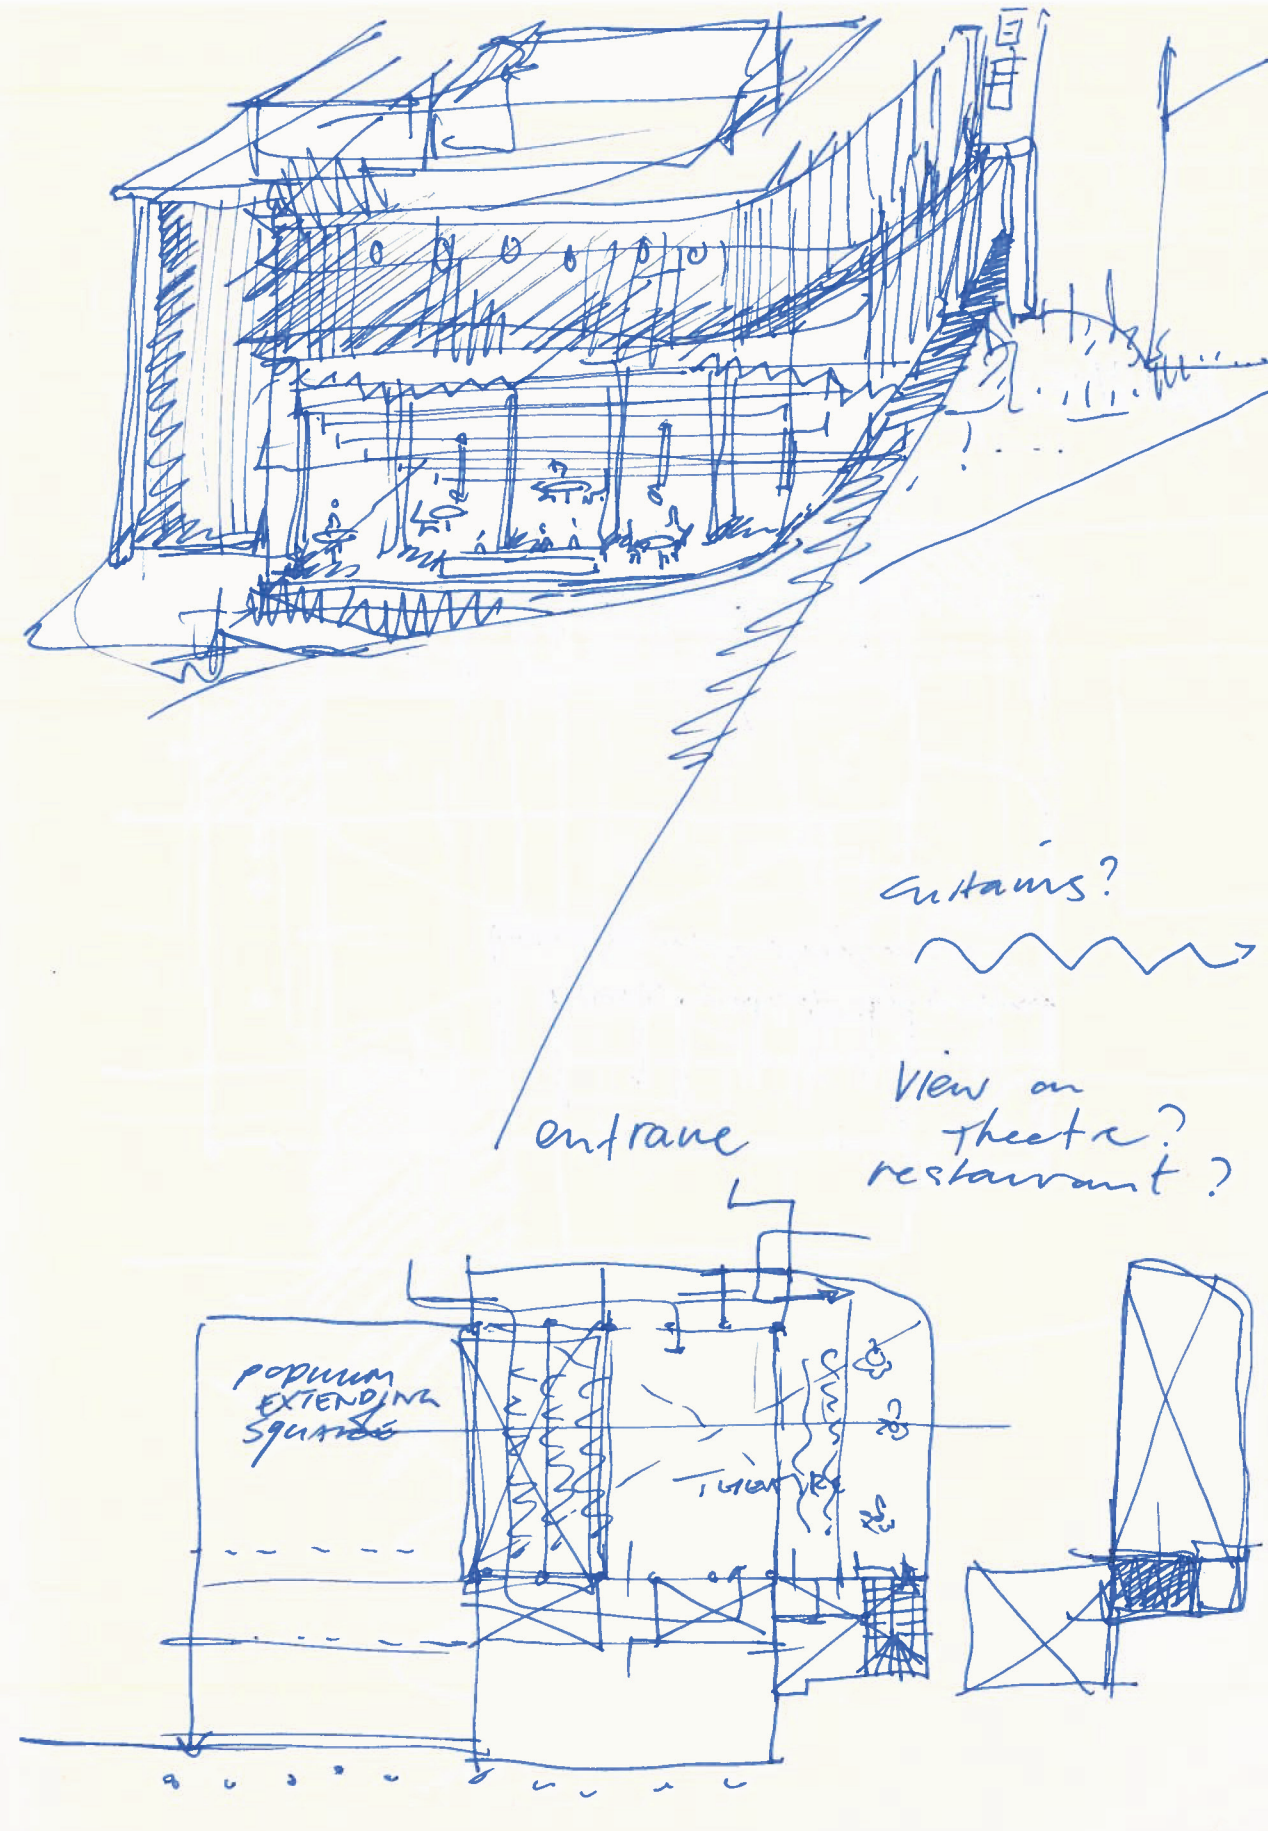 curtains?
View on
theatre?
restaurant?
entrance
PODIUM
EXTENDING
SQUARE
THEATRE